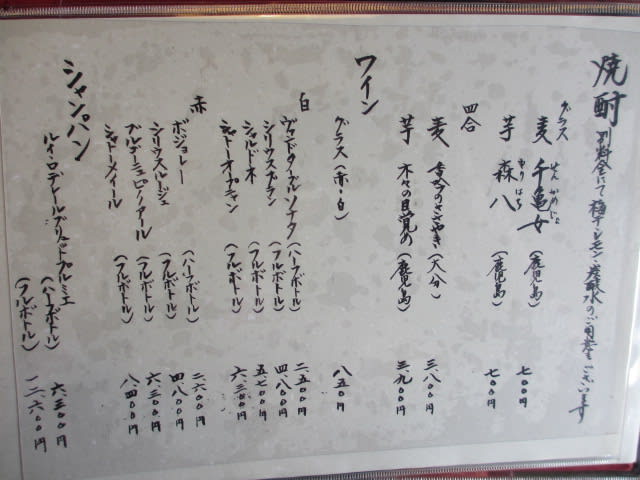 焼酎 別料金にて梅干・レモン・炭酸水のご用意ございます
グラス
麦 千亀女 せんかめじょ (鹿児島) 七〇〇円
芋 森八 もりはち (鹿児島) 七〇〇円
四合
麦 のささやき (大分) 三、八〇〇円
芋 木々の目覚め (鹿児島) 三、九〇〇円
ワイン
グラス (赤・白) 八五〇円
白
ヴァンドターブルソナタ (ハーフボトル) 二、五〇〇円
シリウスブラン (フルボトル) 四、八〇〇円
シャルドネ (フルボトル) 五、七〇〇円
シャトーオープチャン (フルボトル) 六、三〇〇円
赤
ボジョレー (ハーフボトル) 二、六〇〇円
シリウスルージュ (フルボトル) 四、八〇〇円
ブルゴーニュピノノアール (フルボトル) 六、三〇〇円
シャトーメイール (フルボトル) 八、四〇〇円
シャンパン
ルイ・ロデレールブリュットプルミエ
(ハーフボトル) 六、三〇〇円
(フルボトル) 一二、六〇〇円